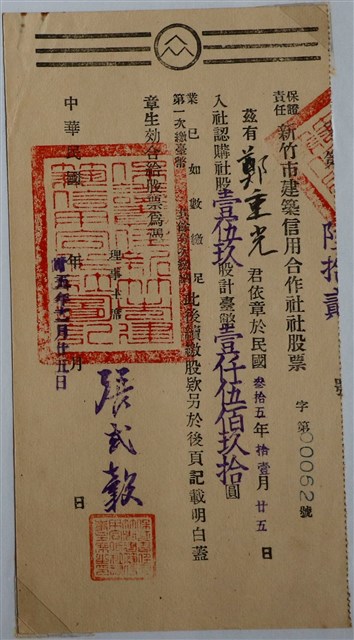 保證責任 新竹市建築信用合作社社股票
字第00062號
陸拾貳
號
茲有鄭重光君依章於民國叁拾五年拾壹月廿五日
入社認購社股壹伍玖股計臺幣壹仟伍佰玖拾圓
業已如數繳足此後續繳股欵另於後頁記載明白蓋
第一次繳臺幣
章生効合給股票為憑
理事主席
張式穀
中華民國 年 月 日
卅五年 月廿五日